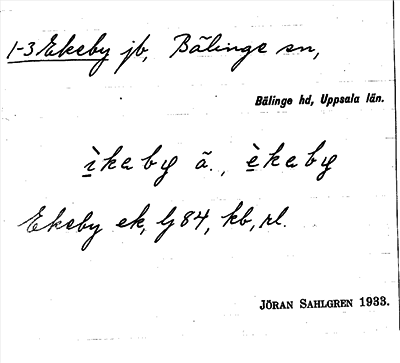 1-3 Ekeby jb, Bälinge sn,
Bälinge hd, Uppsala län.
ı̱̀kaby ä., è̱kaby
Ekeby ek, lj 84, kb, rl.
JÖRAN SAHLGREN 1933.